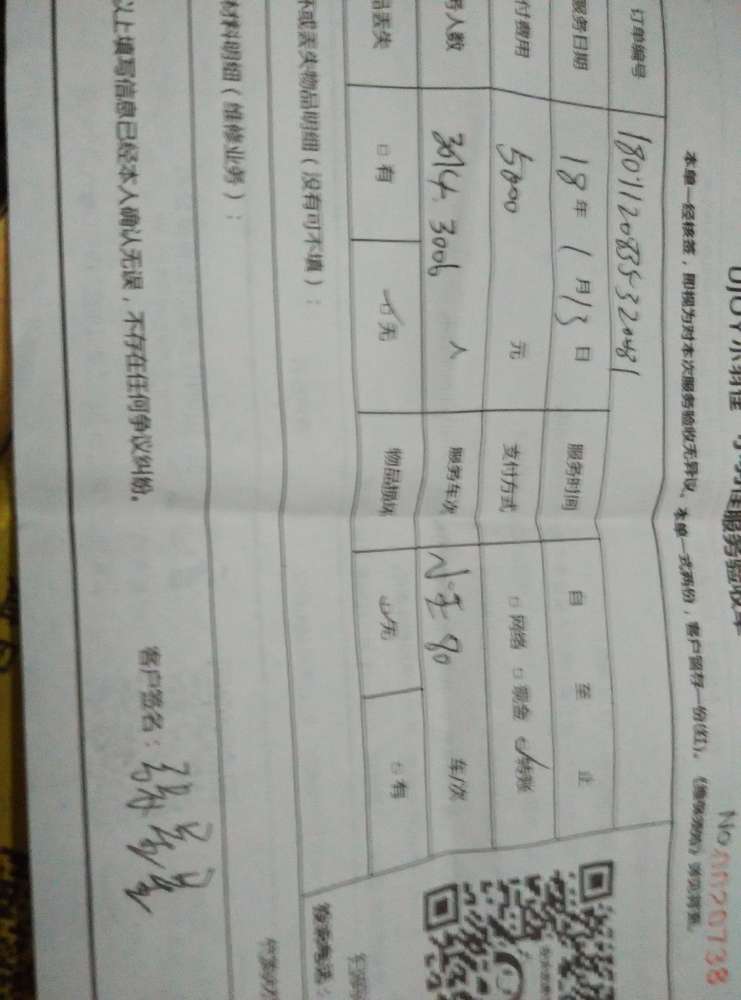 服务验收单
No.0020738
本单一经核签，即视为对本次服务验收无异议。本单一式两份，客户留存一份(红)。
订单编号 1801120835320481
服务日期 18年1月13日 服务时间 自 至 止
付费用 5000 元 支付方式 □网络 □现金 ☑转账
人数 3014.3006 人 服务车次 80 车/次
品丢失 □有 ☑无 物品损坏 ☑无 □有
坏或丢失物品明细（没有可不填）：
材料明细（维修业务）：
以上填写信息已经本人确认无误，不存在任何争议纠纷。
客户签名：